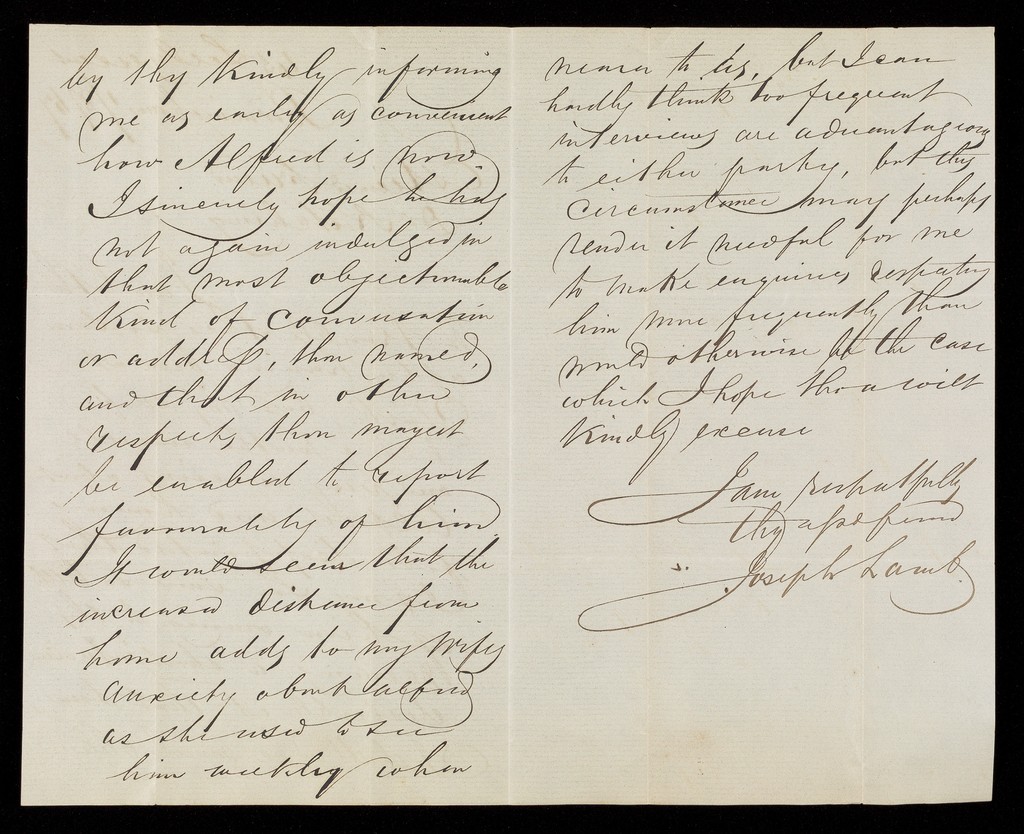 by thy kindly informing
me as early as convenient
how Alfred is now.
I sincerely hope he has
not again indulged in
that most objectionable
kind of conversation
or address, thou named,
and that in other
respects, thou mayest
be enabled to report
favourably of him.
It would seem that the
increased distance from
home adds to my Wifes
anxiety about Alfred
as she used to see
him weekly when
nearer to us, but I can
hardly think too frequent
interviews are advantageous
to either party, but this
circumstance may perhaps
render it needful for me
to make enquiries respecting
him more frequently than
would otherwise be the case
which I hope thou wilt
kindly excuse
I am respectfully
thy affd friend
Joseph Lamb.